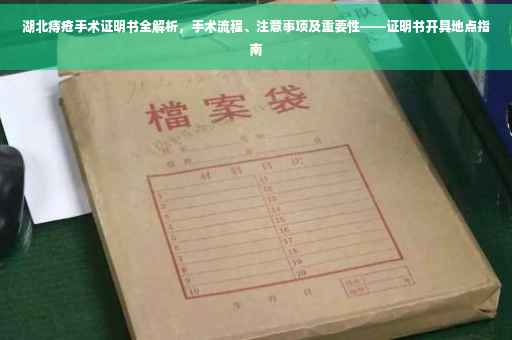 湖北痔疮手术证明书全解析，手术流程、注意事项及重要性——证明书开具地点指
南
檔案袋
材料目次
1 11
2 12
3 13
4 14
5 15
6 16
7 17
8 18
9 19
10 20
年 月 日